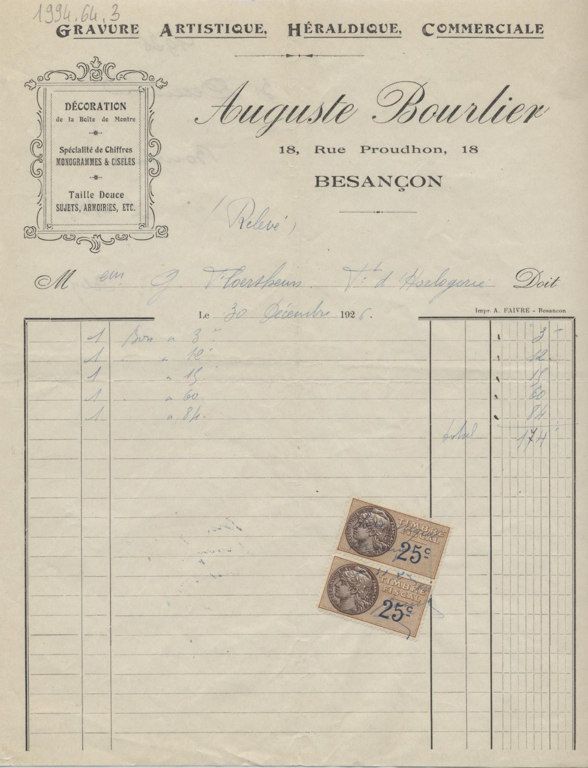 1994.64.3
GRAVURE ARTISTIQUE, HÉRALDIQUE, COMMERCIALE
DÉCORATION
de la Boîte de Montre
Spécialité de Chiffres
MONOGRAMMES & CISELÉS
Taille Douce
SUJETS, ARMOIRIES, ETC.
Auguste Bourlier
18, Rue Proudhon, 18
BESANÇON
(Relevé)
M eur J. d'Horlogerie Doit
Le 30 Décembre 1926.
Impr A. FAIVRE - Besançon
1 Bon à 3 3
1 " à 12 12
1 à 15 15
1 à 60 60
1 à 84 84
total 174
TIMBRE
FISCAL
25c
TIMBRE
FISCAL
25c